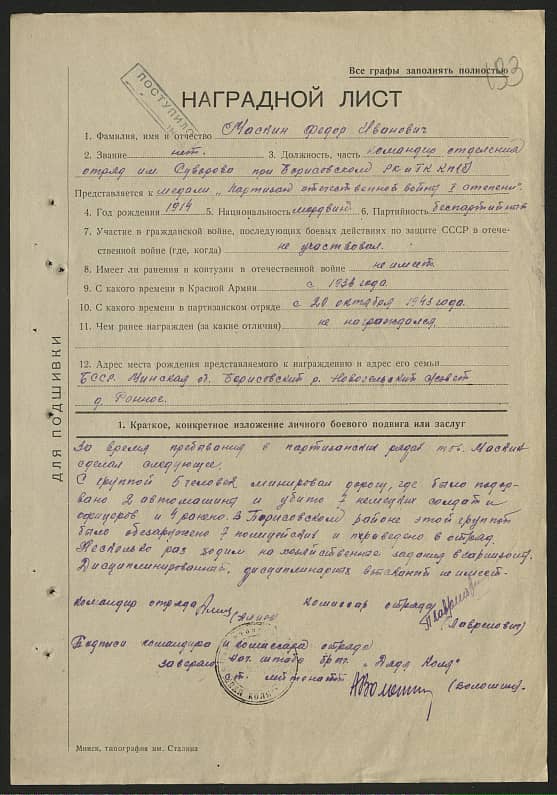 Все графы заполнять полностью
193
ПОСТУПИЛО
НАГРАДНОЙ ЛИСТ
1. Фамилия, имя и отчество Маскин Федор Иванович
2. Звание нет. 3. Должность, часть командир отделения
отряд им. Суворова при Борисовском РК и ГК КП(б)
Представляется к медали „Партизан отечественной войны I степени".
4. Год рождения 1914 5. Национальность мордвин 6. Партийность беспартийная
7. Участие в гражданской войне, последующих боевых действиях по защите СССР в отече-
ственной войне (где, когда) не участвовал.
8. Имеет ли ранения и контузии в отечественной войне не имеет
9. С какого времени в Красной Армии с 1936 года.
10. С какого времени в партизанском отряде с 20 октября 1943 года.
11. Чем ранее награжден (за какие отличия) не награждался
12. Адрес места рождения представляемого к награждению и адрес его семьи
БССР. Минская об. Борисовский р.
д.
ДЛЯ ПОДШИВКИ
1. Краткое, конкретное изложение личного боевого подвига или заслуг
За время пребывания в партизанских рядах тов. Маскин
сделал следующее.
С группой 5 человек минировал дорогу, где было подор-
вано 2 автомашины и убито 7 немецких солдат и
офицеров и 4 ранено. В Борисовском районе этой группой
было обезаружено 7 полицейских и приведено в отряд.
Несколько раз ходил на хозяйственные задания в гарнизоны.
Дисциплинированный, дисциплинарных взысканий не имеет.
Командир отряда Комиссар отряда
(Лавренович)
Подписи командира и комиссара отряда
заверяю Нач. штаба бриг. „Дядя Коля"
ст. лейтенант (Волошин).
Минск, типография им. Сталина